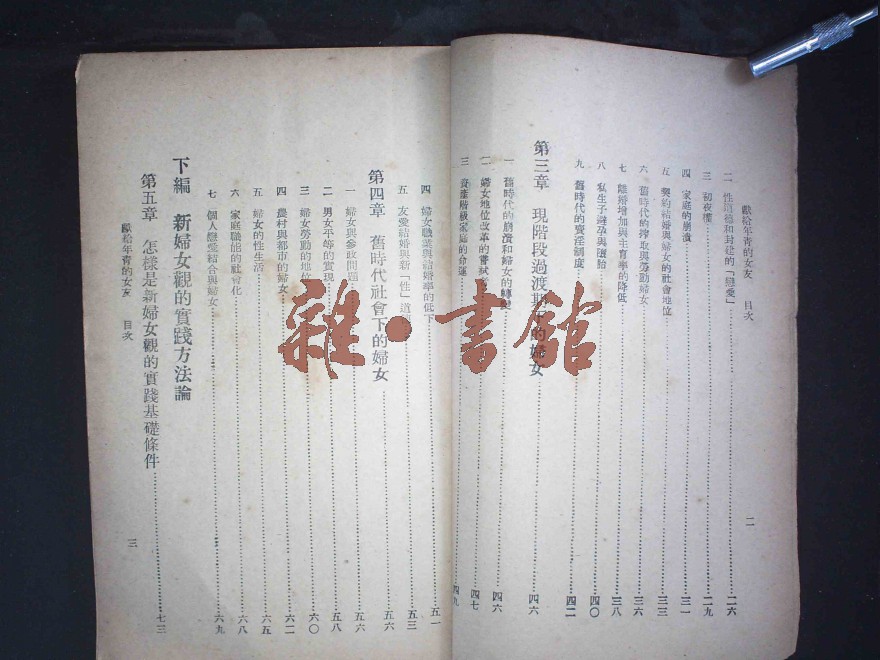 獻給年青的女友 目次 二
二 性道德和封建的「戀愛」 二六
三 初夜權 二九
四 家庭的崩潰 三一
五 契約結婚與婦女的社會地位 三三
六 舊時代的搾取與勞動婦女 三六
七 離婚增加與生育率的降低 三八
八 私生子避孕與墮胎 四〇
九 舊時代的賣淫制度 四二
第三章 現階段過渡期下的婦女 四六
一 舊時代的崩潰和婦女的轉變 四六
二 婦女地位改革的嘗試 四七
三 資產階級家庭的命運 四九
四 婦女職業與結婚率的低下 五一
五 友愛結婚與新「性」道 五三
第四章 舊時代社會下的婦女 五六
一 婦女與參政問題 五六
二 男女平等的實現 五八
三 婦女勞動的地位 六〇
四 農村與都市的婦女 六二
五 婦女的性生活 六五
六 家庭職能的社會化 六八
七 個人戀愛結合與婦女 六九
下編 新婦女觀的實踐方法論
第五章 怎樣是新婦女觀的實踐基礎條件 七三
獻給年青的女友 目次 三
雜·書館